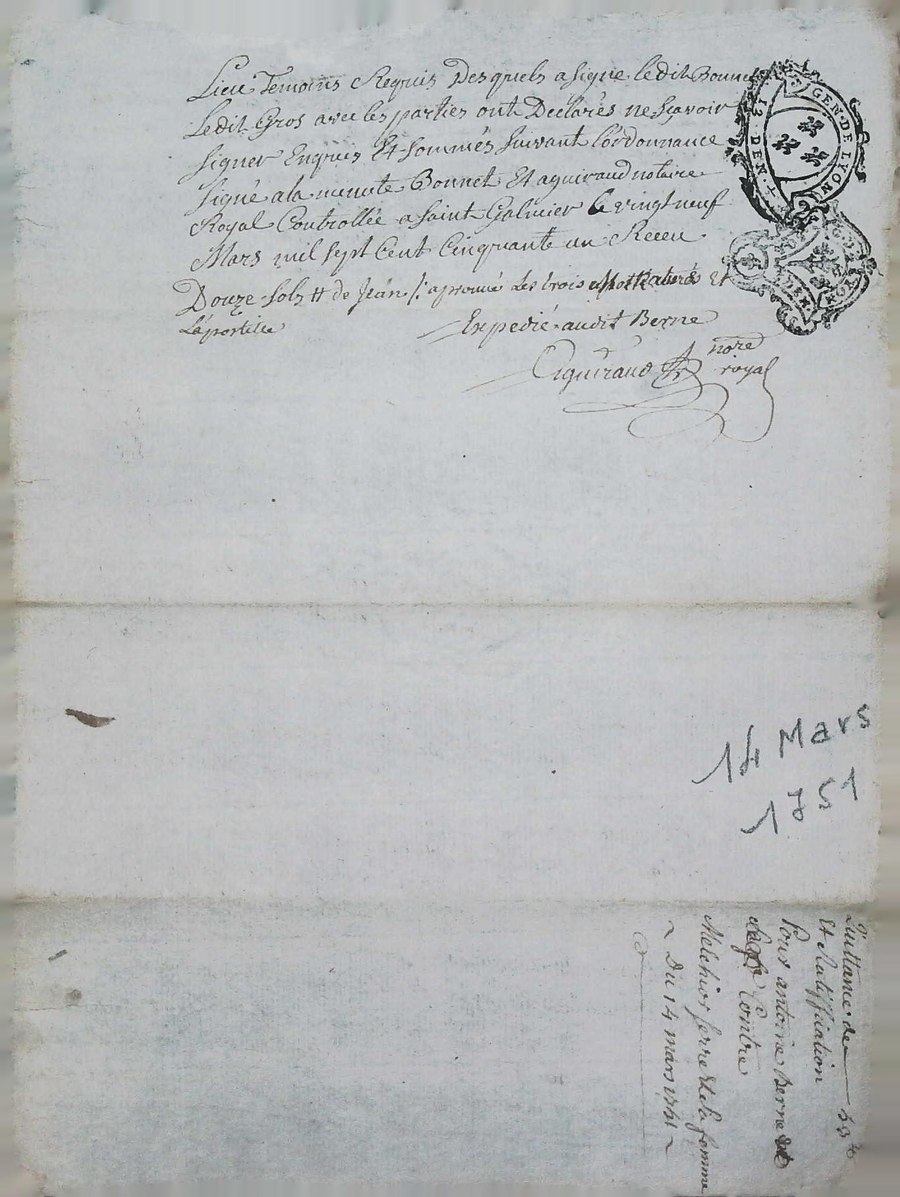 Lieu Temoins Requis Desquels a signe ledit Bonnet
Ledit Gros avec les parties ont Declarés ne Scavoir
signer Enquis Et sommés suivant l'ordonnance
signé a la minute Bonnet Et aguiraud notaire
Royal Controllée a Saint Galmier le vingt neuf
Mars mil sept Cent Cinquante un Receu
Douze sols # de Jean /. aprouvé Les trois mots Et
L'apostille
Expedié audit Berne
Aguiraud nore
royal
GEN. DE LYON
13 DEN.
14 Mars
1751
Quittance de
Et Ratiffication
Pour antoine Berne
Contre
Melchior ferre Et la femme
~ Du 14 mars 1751 ~